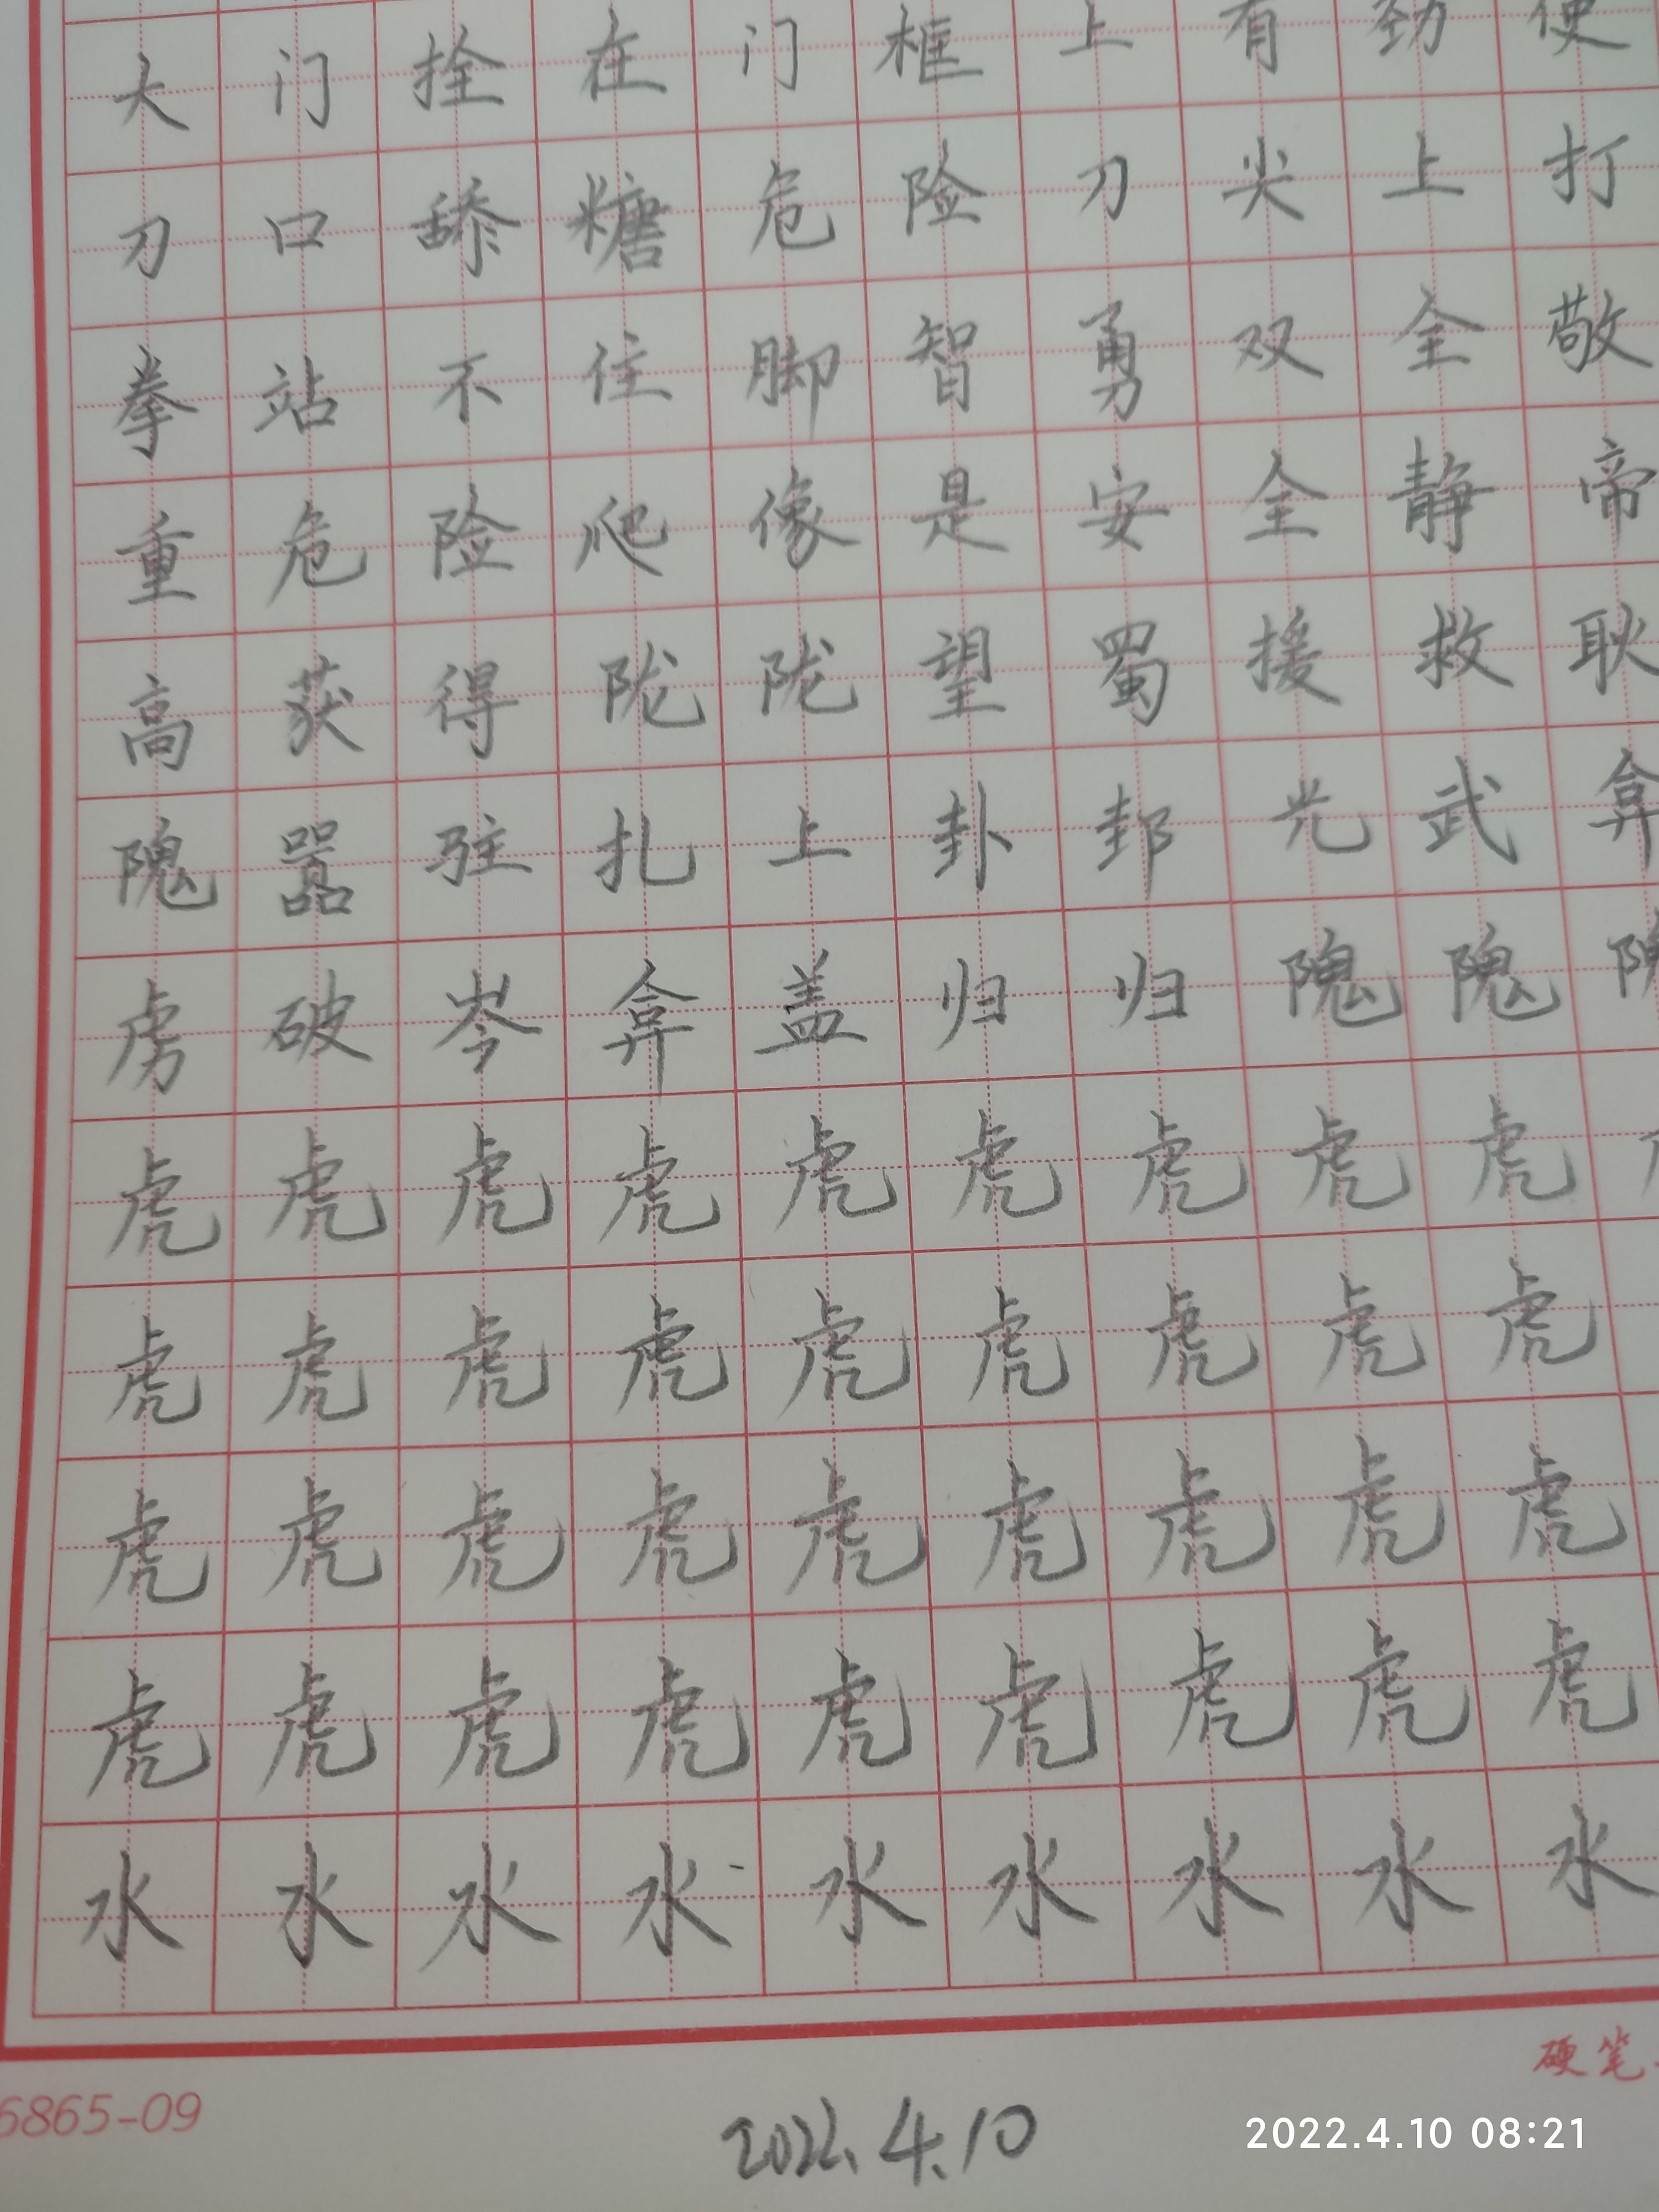 大门拴在门框上有劲使
刀口舔糖危险刀尖上打
拳站不住脚智勇双全敬
重危险爬像是安全静帝
高获得陇陇望蜀援救耿
隗嚣驻扎上卦邽光武弇
虏破岑弇盖归归隗隗
虎虎虎虎虎虎虎虎虎
虎虎虎虎虎虎虎虎虎
虎虎虎虎虎虎虎虎虎
虎虎虎虎虎虎虎虎虎
水水水水水水水水水
硬笔
6865-09
2022.4.10
2022.4.10 08:21